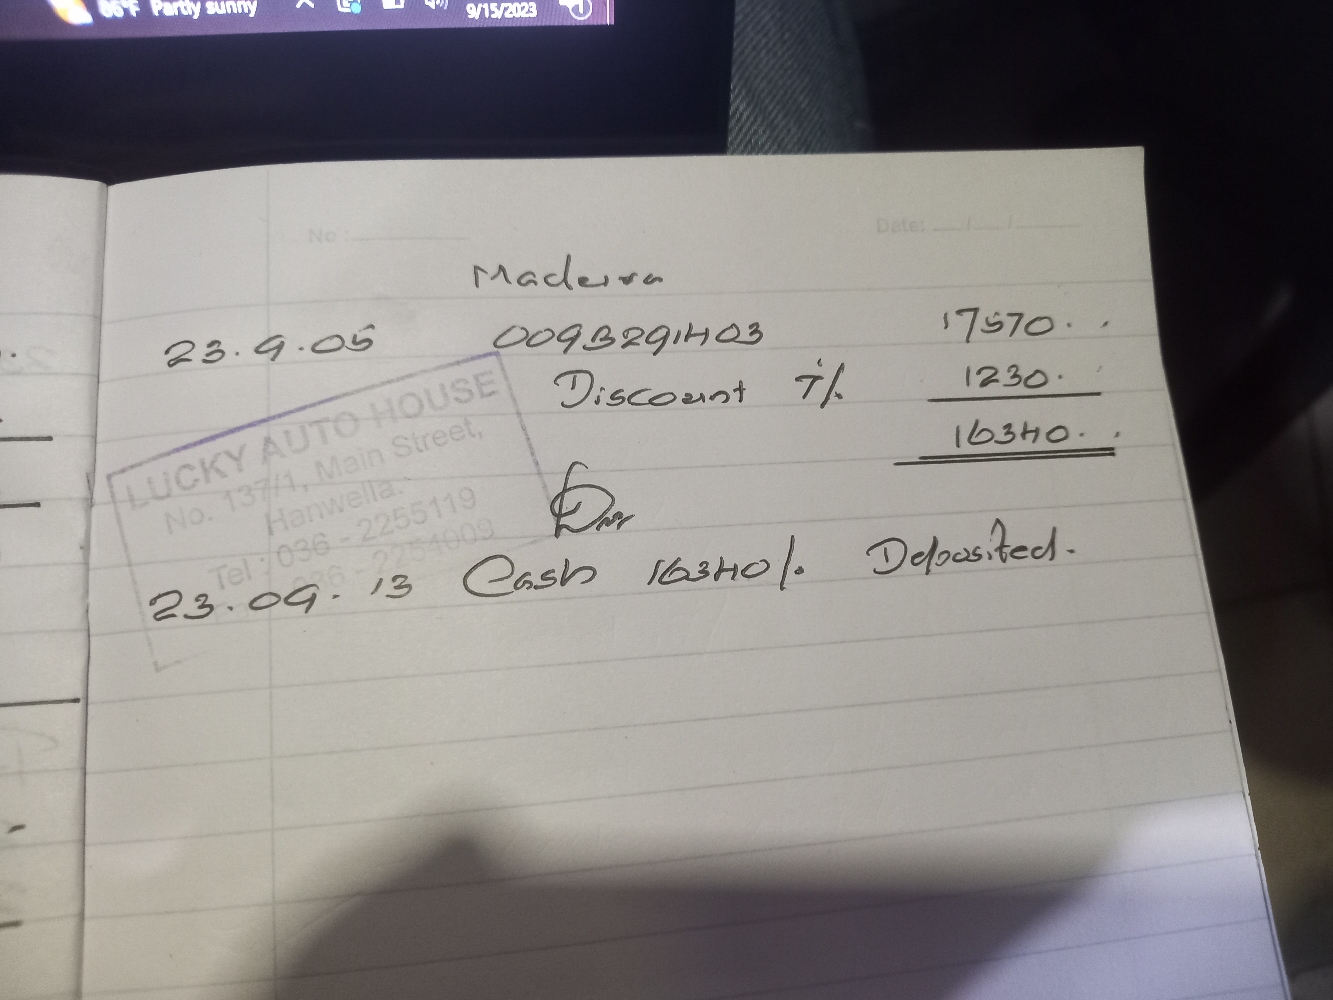 86°F Partly sunny
9/15/2023
No :
Date: / /
Madeira
23.9.05 0093291403 17570.
Discount 7% 1230.
16340.
LUCKY AUTO HOUSE
No. 137/1, Main Street,
Hanwella.
Tel : 036 - 2255119
036 - 2254009
23.09.13 Cash 16340/. Deposited.